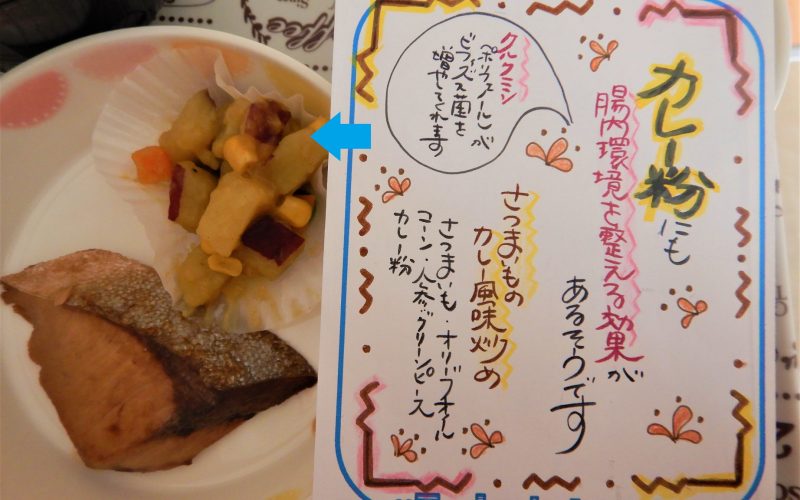 カレー粉にも
腸内環境を整える効果が
あるそうです
クルクミン
(ポリフェノール)が
ビフィズス菌を
増やしてくれます
さつまいもの
カレー風味炒め
さつまいも・オリーブオイル
コーン・人参・グリーンピース
カレー粉